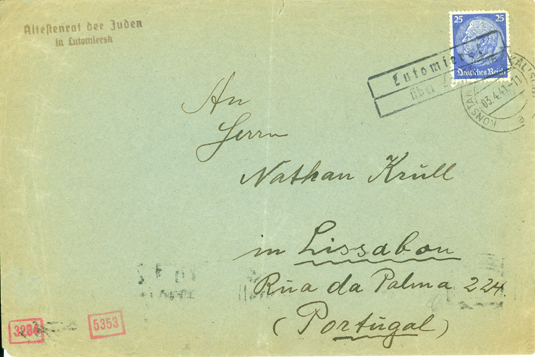 Ältestenrat der Juden
in Lutomiersk
25 25
Deutsches Reich
Lutomiersk
über
03.4.41
An
Herrn
Nathan Krull
in Lissabon
Rua da Palma 224
(Portugal)
5353